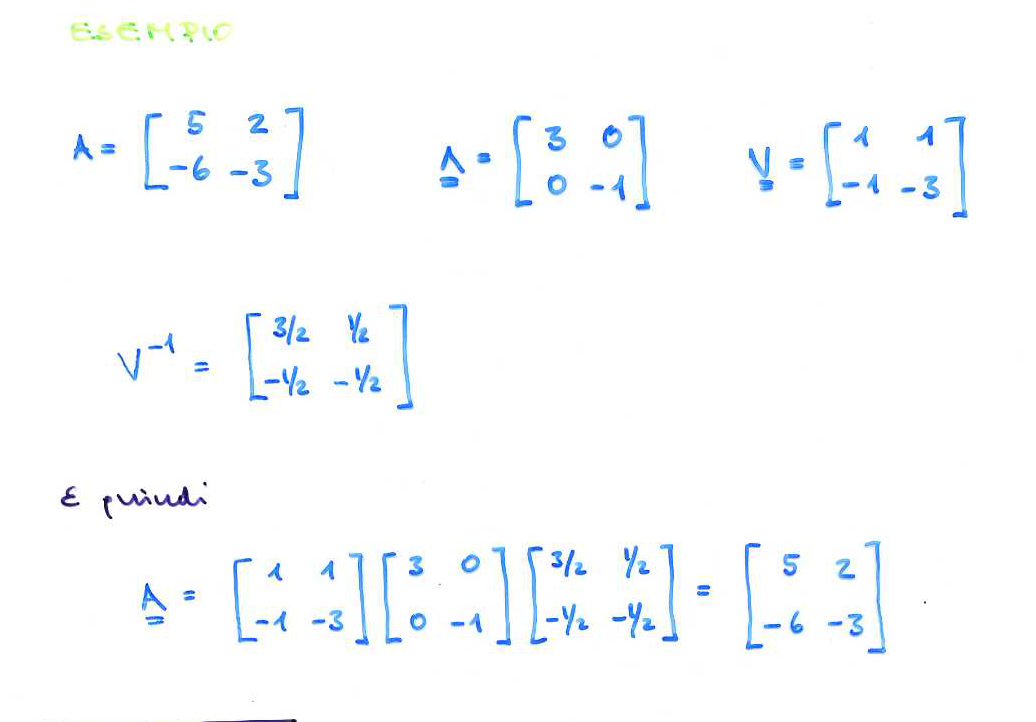 ESEMPIO
A = [ 5 2 ; -6 -3 ] Λ = [ 3 0 ; 0 -1 ] V = [ 1 1 ; -1 -3 ]
V⁻¹ = [ 3/2 1/2 ; -1/2 -1/2 ]
E quindi
A = [ 1 1 ; -1 -3 ] [ 3 0 ; 0 -1 ] [ 3/2 1/2 ; -1/2 -1/2 ] = [ 5 2 ; -6 -3 ]